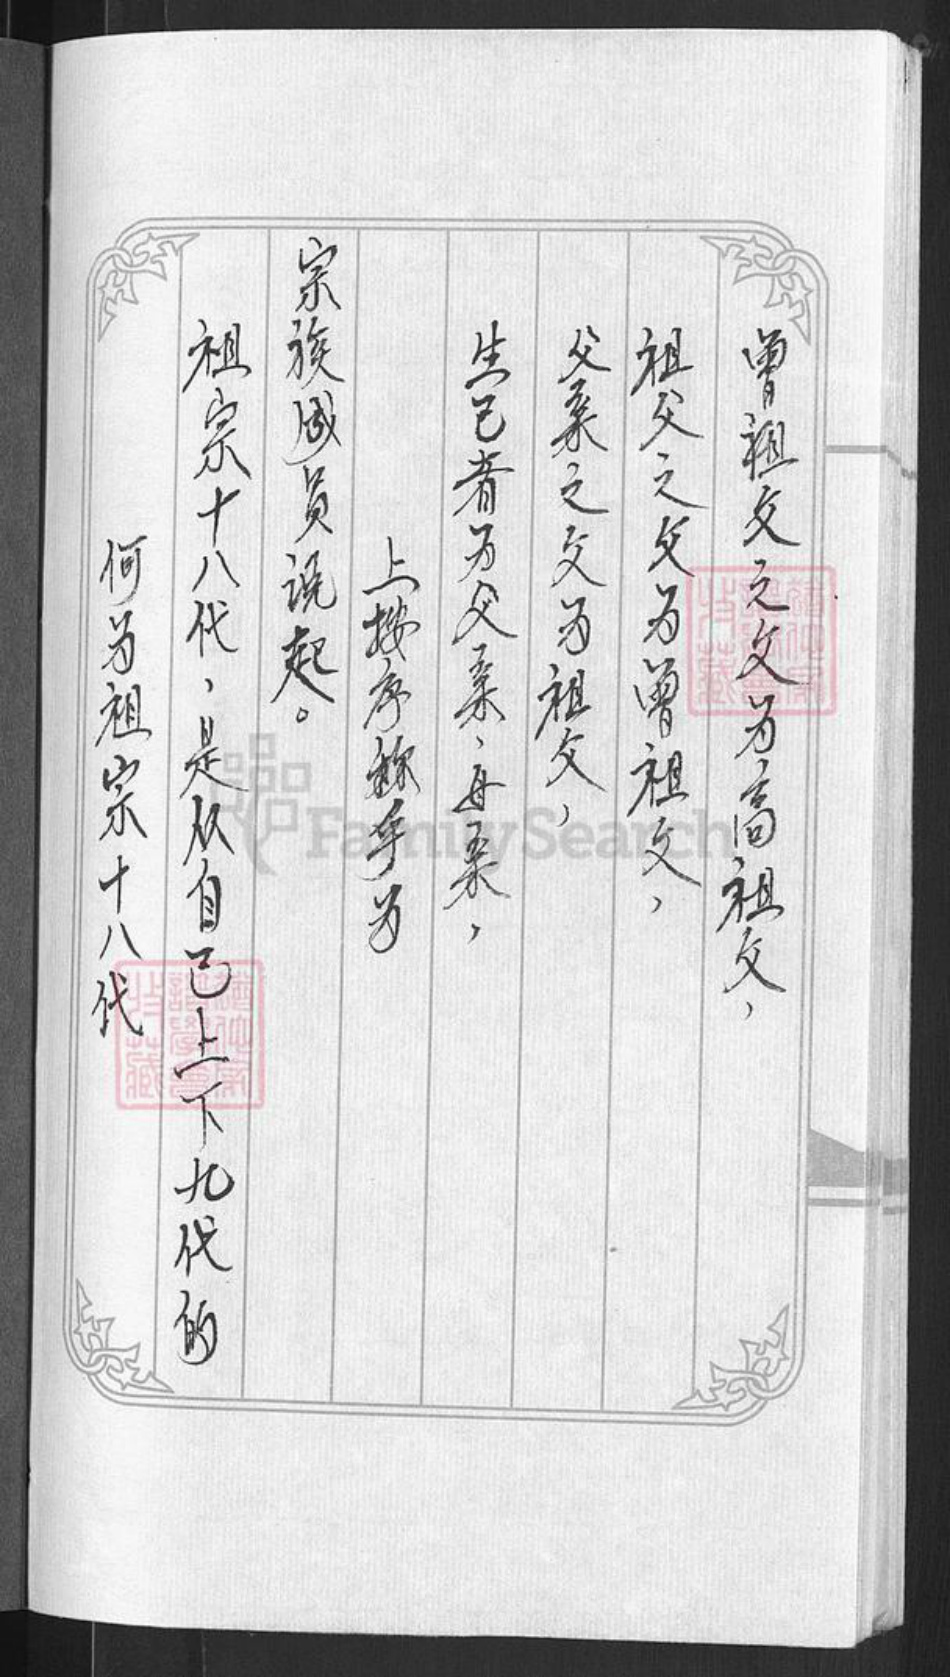 何为祖宗十八代
祖宗十八代，是从自己上下九代的
宗族成员说起。
上按序称乎为
生己者为父亲、母亲，
父亲之父为祖父，
祖父之父为曾祖父，
曾祖父之父为高祖父，
FamilySearch